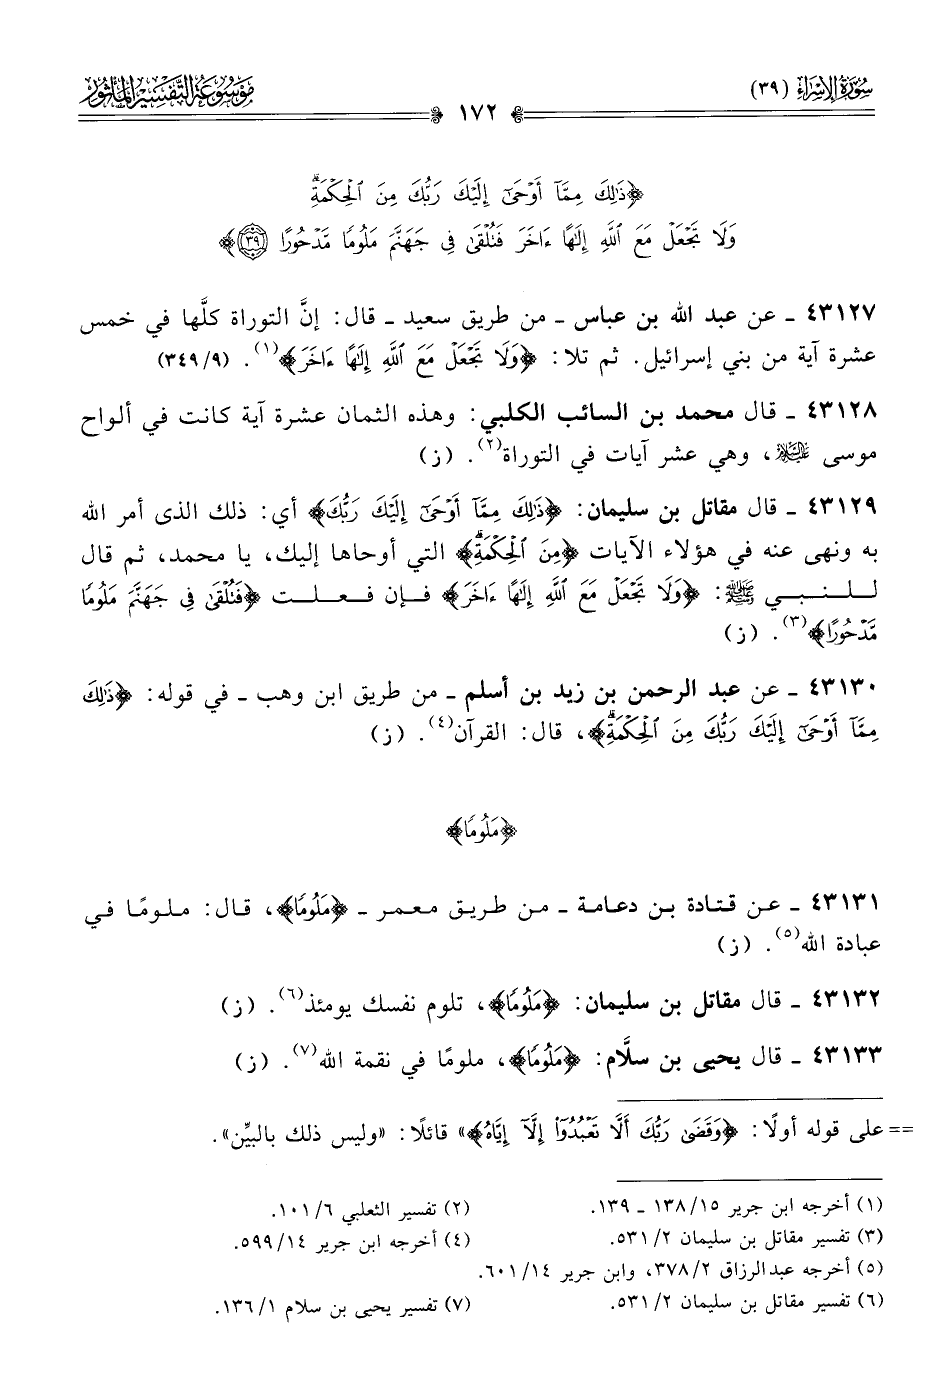 سُورَةُ الإِسْرَاء (٣٩)
١٧٢
مَوْسُوعَة التَّفْسِير المَأثُور
﴿ذَٰلِكَ مِمَّآ أَوْحَىٰٓ إِلَيْكَ رَبُّكَ مِنَ ٱلْحِكْمَةِۗ
وَلَا تَجْعَلْ مَعَ ٱللَّهِ إِلَٰهًا ءَاخَرَ فَتُلْقَىٰ فِى جَهَنَّمَ مَلُومًا مَّدْحُورًا ٣٩﴾
٤٣١٢٧ ـ عن عبد الله بن عباس ـ من طريق سعيد ـ قال: إنَّ التوراة كلَّها في خمس
عشرة آية من بني إسرائيل. ثم تلا: ﴿وَلَا تَجْعَلْ مَعَ ٱللَّهِ إِلَٰهًا ءَاخَرَ﴾(١). (٣٤٩/٩)
٤٣١٢٨ ـ قال محمد بن السائب الكلبي: وهذه الثمان عشرة آية كانت في ألواح
موسى عليه السلام، وهي عشر آيات في التوراة(٢). (ز)
٤٣١٢٩ ـ قال مقاتل بن سليمان: ﴿ذَٰلِكَ مِمَّآ أَوْحَىٰٓ إِلَيْكَ رَبُّكَ﴾ أي: ذلك الذى أمر الله
به ونهى عنه في هؤلاء الآيات ﴿مِنَ ٱلْحِكْمَةِۗ﴾ التي أوحاها إليك، يا محمد، ثم قال
للنبي ﷺ: ﴿وَلَا تَجْعَلْ مَعَ ٱللَّهِ إِلَٰهًا ءَاخَرَ﴾ فإن فعلت ﴿فَتُلْقَىٰ فِى جَهَنَّمَ مَلُومًا
مَّدْحُورًا﴾(٣). (ز)
٤٣١٣٠ ـ عن عبد الرحمن بن زيد بن أسلم ـ من طريق ابن وهب ـ في قوله: ﴿ذَٰلِكَ
مِمَّآ أَوْحَىٰٓ إِلَيْكَ رَبُّكَ مِنَ ٱلْحِكْمَةِۗ﴾، قال: القرآن(٤). (ز)
﴿مَلُومًا﴾
٤٣١٣١ ـ عن قتادة بن دعامة ـ من طريق معمر ـ ﴿مَلُومًا﴾، قال: ملومًا في
عبادة الله(٥). (ز)
٤٣١٣٢ ـ قال مقاتل بن سليمان: ﴿مَلُومًا﴾، تلوم نفسك يومئذ(٦). (ز)
٤٣١٣٣ ـ قال يحيى بن سلَّام: ﴿مَلُومًا﴾، ملومًا في نقمة الله(٧). (ز)
== على قوله أولًا: ﴿وَقَضَىٰ رَبُّكَ أَلَّا تَعْبُدُوٓا۟ إِلَّآ إِيَّاهُ﴾» قائلًا: «وليس ذلك بالبيِّن».
(١) أخرجه ابن جرير ١٥/ ١٣٨ ـ ١٣٩. (٢) تفسير الثعلبي ٦/ ١٠١.
(٣) تفسير مقاتل بن سليمان ٢/ ٥٣١. (٤) أخرجه ابن جرير ١٤/ ٥٩٩.
(٥) أخرجه عبدالرزاق ٢/ ٣٧٨، وابن جرير ١٤/ ٦٠١.
(٦) تفسير مقاتل بن سليمان ٢/ ٥٣١. (٧) تفسير يحيى بن سلام ١/ ١٣٦.